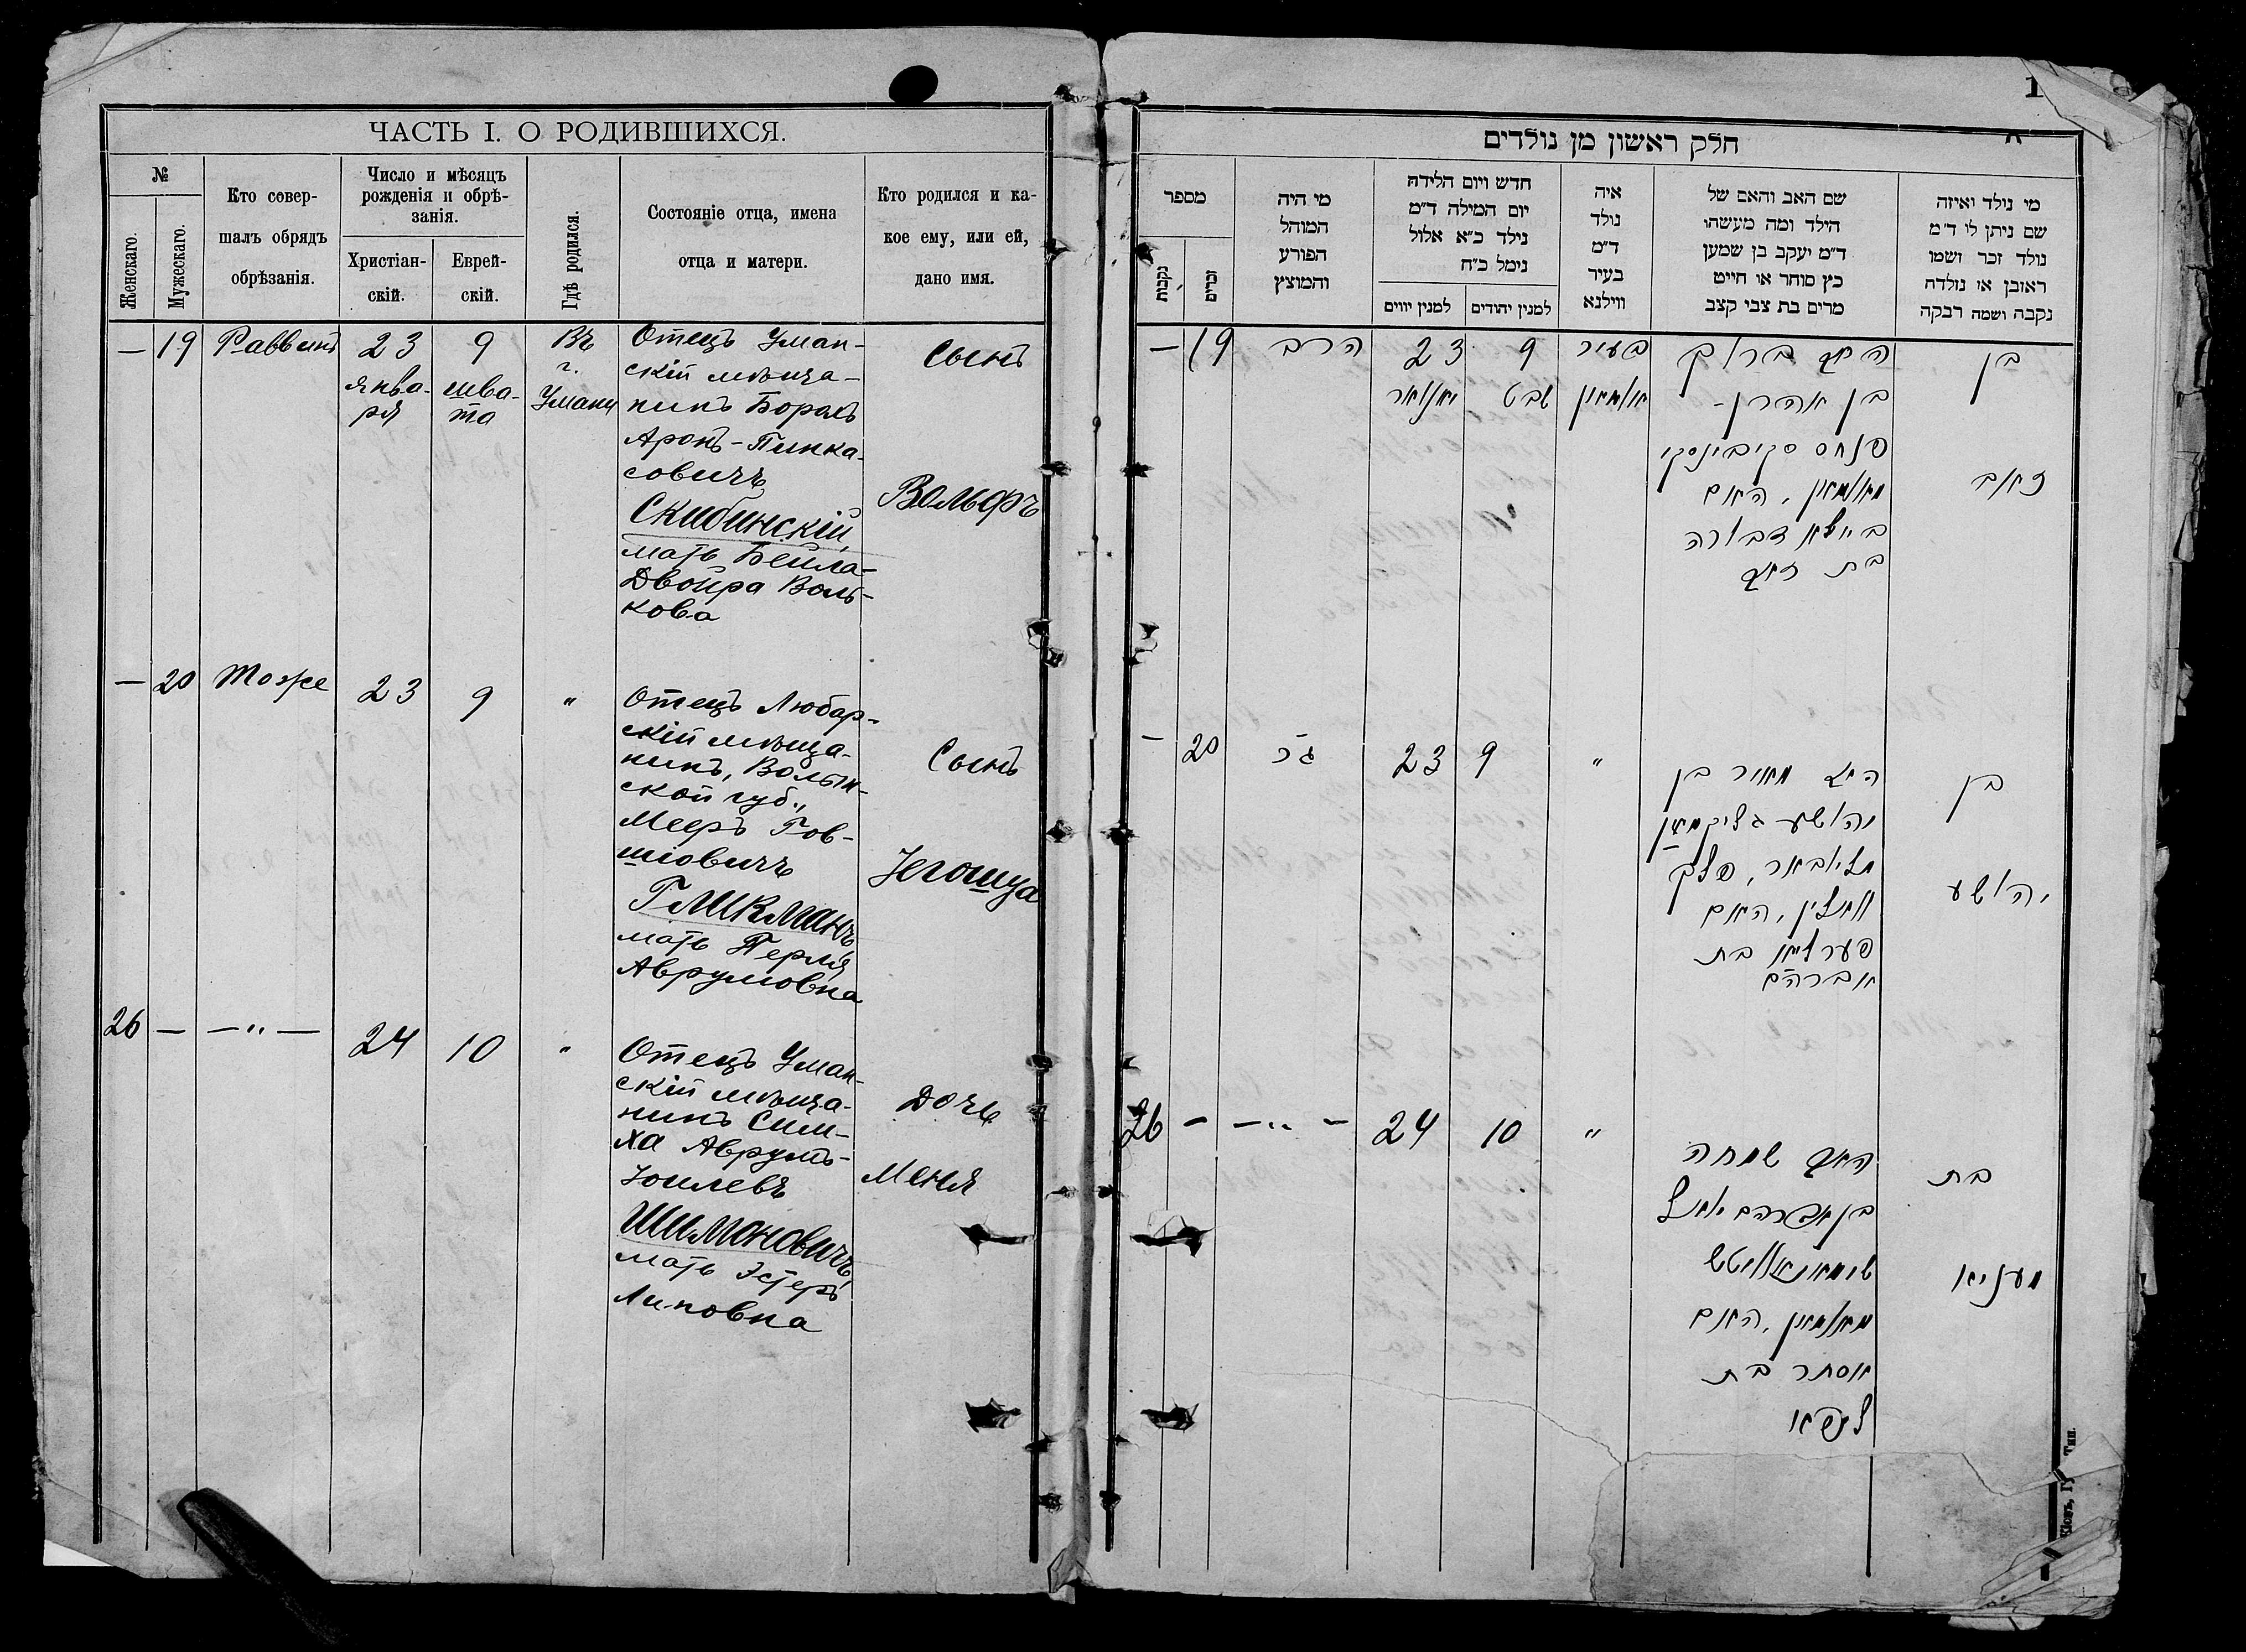 ЧАСТЬ I. О РОДИВШИХСЯ.
№
Женскаго.
Мужескаго.
Кто совер-
шалъ обрядъ
обрѣзанія.
Число и мѣсяцъ
рожденія и обрѣ-
занія.
Христіан-
скій.
Еврей-
скій.
Гдѣ родился.
Состояніе отца, имена
отца и матери.
Кто родился и ка-
кое ему, или ей,
дано имя.
— 19 Раввинъ 23 9
янва-
ря
шва-
та
Въ
г.
Умани
Отецъ Уман-
скій мѣща-
нинъ Борахъ
Аронъ-Пинка-
совичъ
Скибинскій,
мать Бейла-
Двойра Воль-
кова
Сынъ
Вольфъ
— 20 Тоже 23 9 "
Отецъ Любар-
скій мѣща-
нинъ, Волын-
ской губ.,
Мееръ Гов-
шіовичъ
Гликманъ,
мать Перля
Аврумовна
Сынъ
Іегошуа
26 — —"— 24 10 "
Отецъ Уман-
скій мѣща-
нинъ Сим-
ха Аврумъ-
Іоилевъ
Шимановичъ,
мать Эстеръ
Липовна
Дочь
Меня
1
חלק ראשון מן נולדים
מספר
נקבות
זכרים
מי היה
המוהל
הפורע
והמוצץ
חדש ויום הלידה
יום המילה ד"מ
נילד כ"א אלול
נימל כ"ח
למנין יווים
למנין יהודים
איה
נולד
ד"מ
בעיר
ווילנא
שם האב והאם של
הילד ומה מעשהו
ד"מ יעקב בן שמען
כץ סוחר או חייט
מרים בת צבי קצב
מי נולד ואיזה
שם ניתן לו ד"מ
נולד זכר ושמו
ראובן או נולדה
נקבה ושמה רבקה
— 19 הרב 23 9
יאנואר
שבט
בעיר
אומאן
האב ברוך
בן אהרן-
פנחס סקיבינסקי
מאומאן, האם
ביילא דבורה
בת זאב
בן
זאב
— 20 23 9 "
האב מאיר בן
יהושע גליקמאן
מליובאר, פלך
וואלין, האם
פערליא בת
אברהם
בן
יהושע
26 — —"— 24 10 "
האב שמחה
בן אברהם יואל
שימאנאוויטש
מאומאן, האם
אסתר בת
ליפא
בת
מעניא